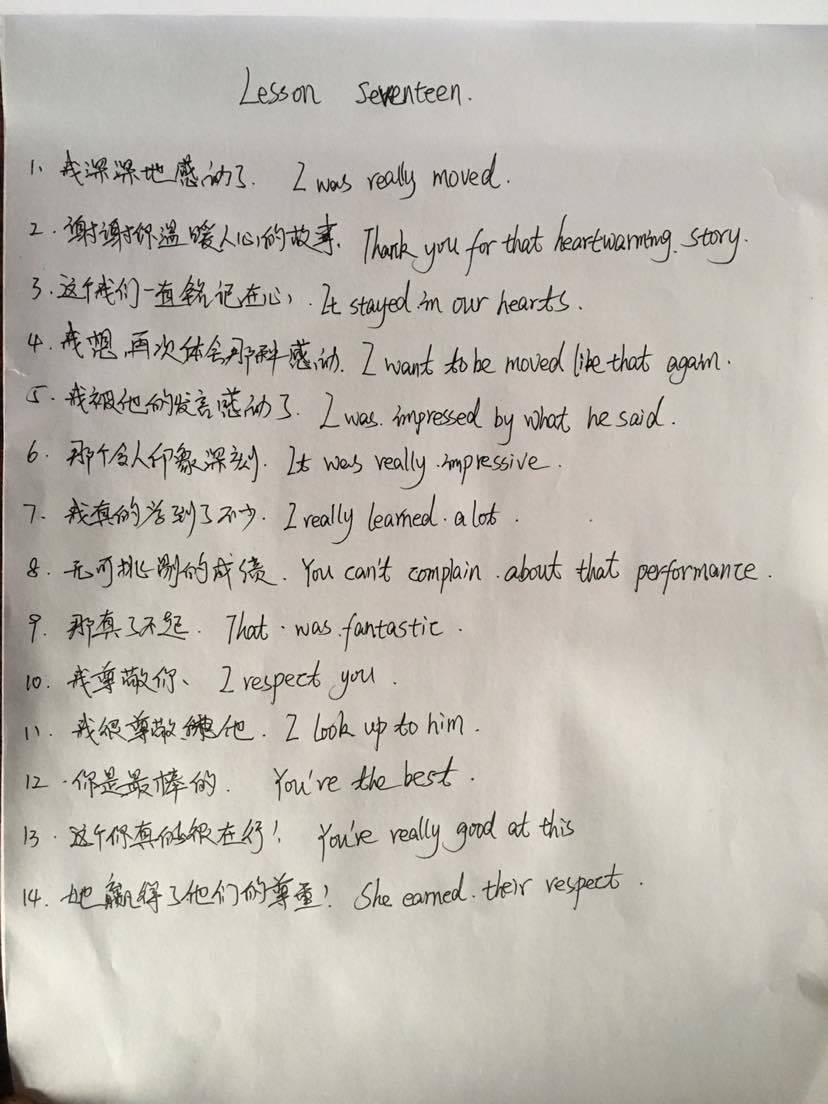 Lesson Seventeen.
1、我深深地感动了. I was really moved.
2.谢谢你温暖人心的故事. Thank you for that heartwarming story.
3.这个我们一直铭记在心. It stayed in our hearts.
4.我想再次体会那种感动. I want to be moved like that again.
5.我被他的发言感动了. I was impressed by what he said.
6.那个令人印象深刻. It was really impressive.
7.我真的学到了不少. I really learned a lot.
8.无可挑剔的成绩. You can't complain about that performance.
9.那真了不起. That was fantastic.
10.我尊敬你、 I respect you.
11.我很尊敬他. I look up to him.
12.你是最棒的. You're the best.
13.这个你真的很在行! You're really good at this
14.她赢得了他们的尊重! She earned their respect.